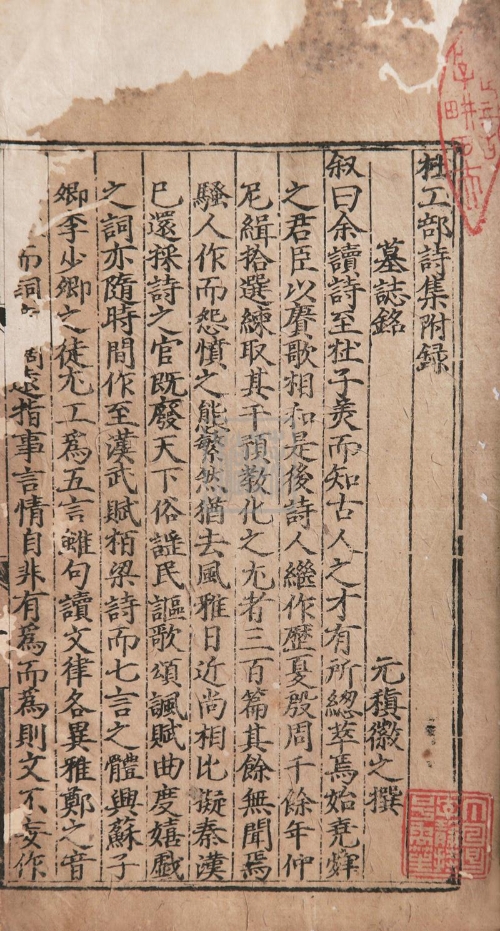 杜工部詩集附録
墓誌銘 元稹微之撰
叙曰余讀詩至杜子美而知古人之才有所總萃焉始堯舜
之君臣以賡歌相和是後詩人繼作歷夏殷周千餘年仲
尼緝拾選練取其干預教化之尤者三百篇其餘無聞焉
騷人作而怨憤之態繁然猶去風雅日近尚相比擬秦漢
已還採詩之官既廢天下俗謡民謳歌頌諷賦曲度嬉戲
之詞亦隨時間作至漢武賦栢梁詩而七言之體興蘇子
卿李少卿之徒尤工爲五言雖句讀文律各異雅鄭之音
而詞 遠指事言情自非有爲而爲則文不妄作